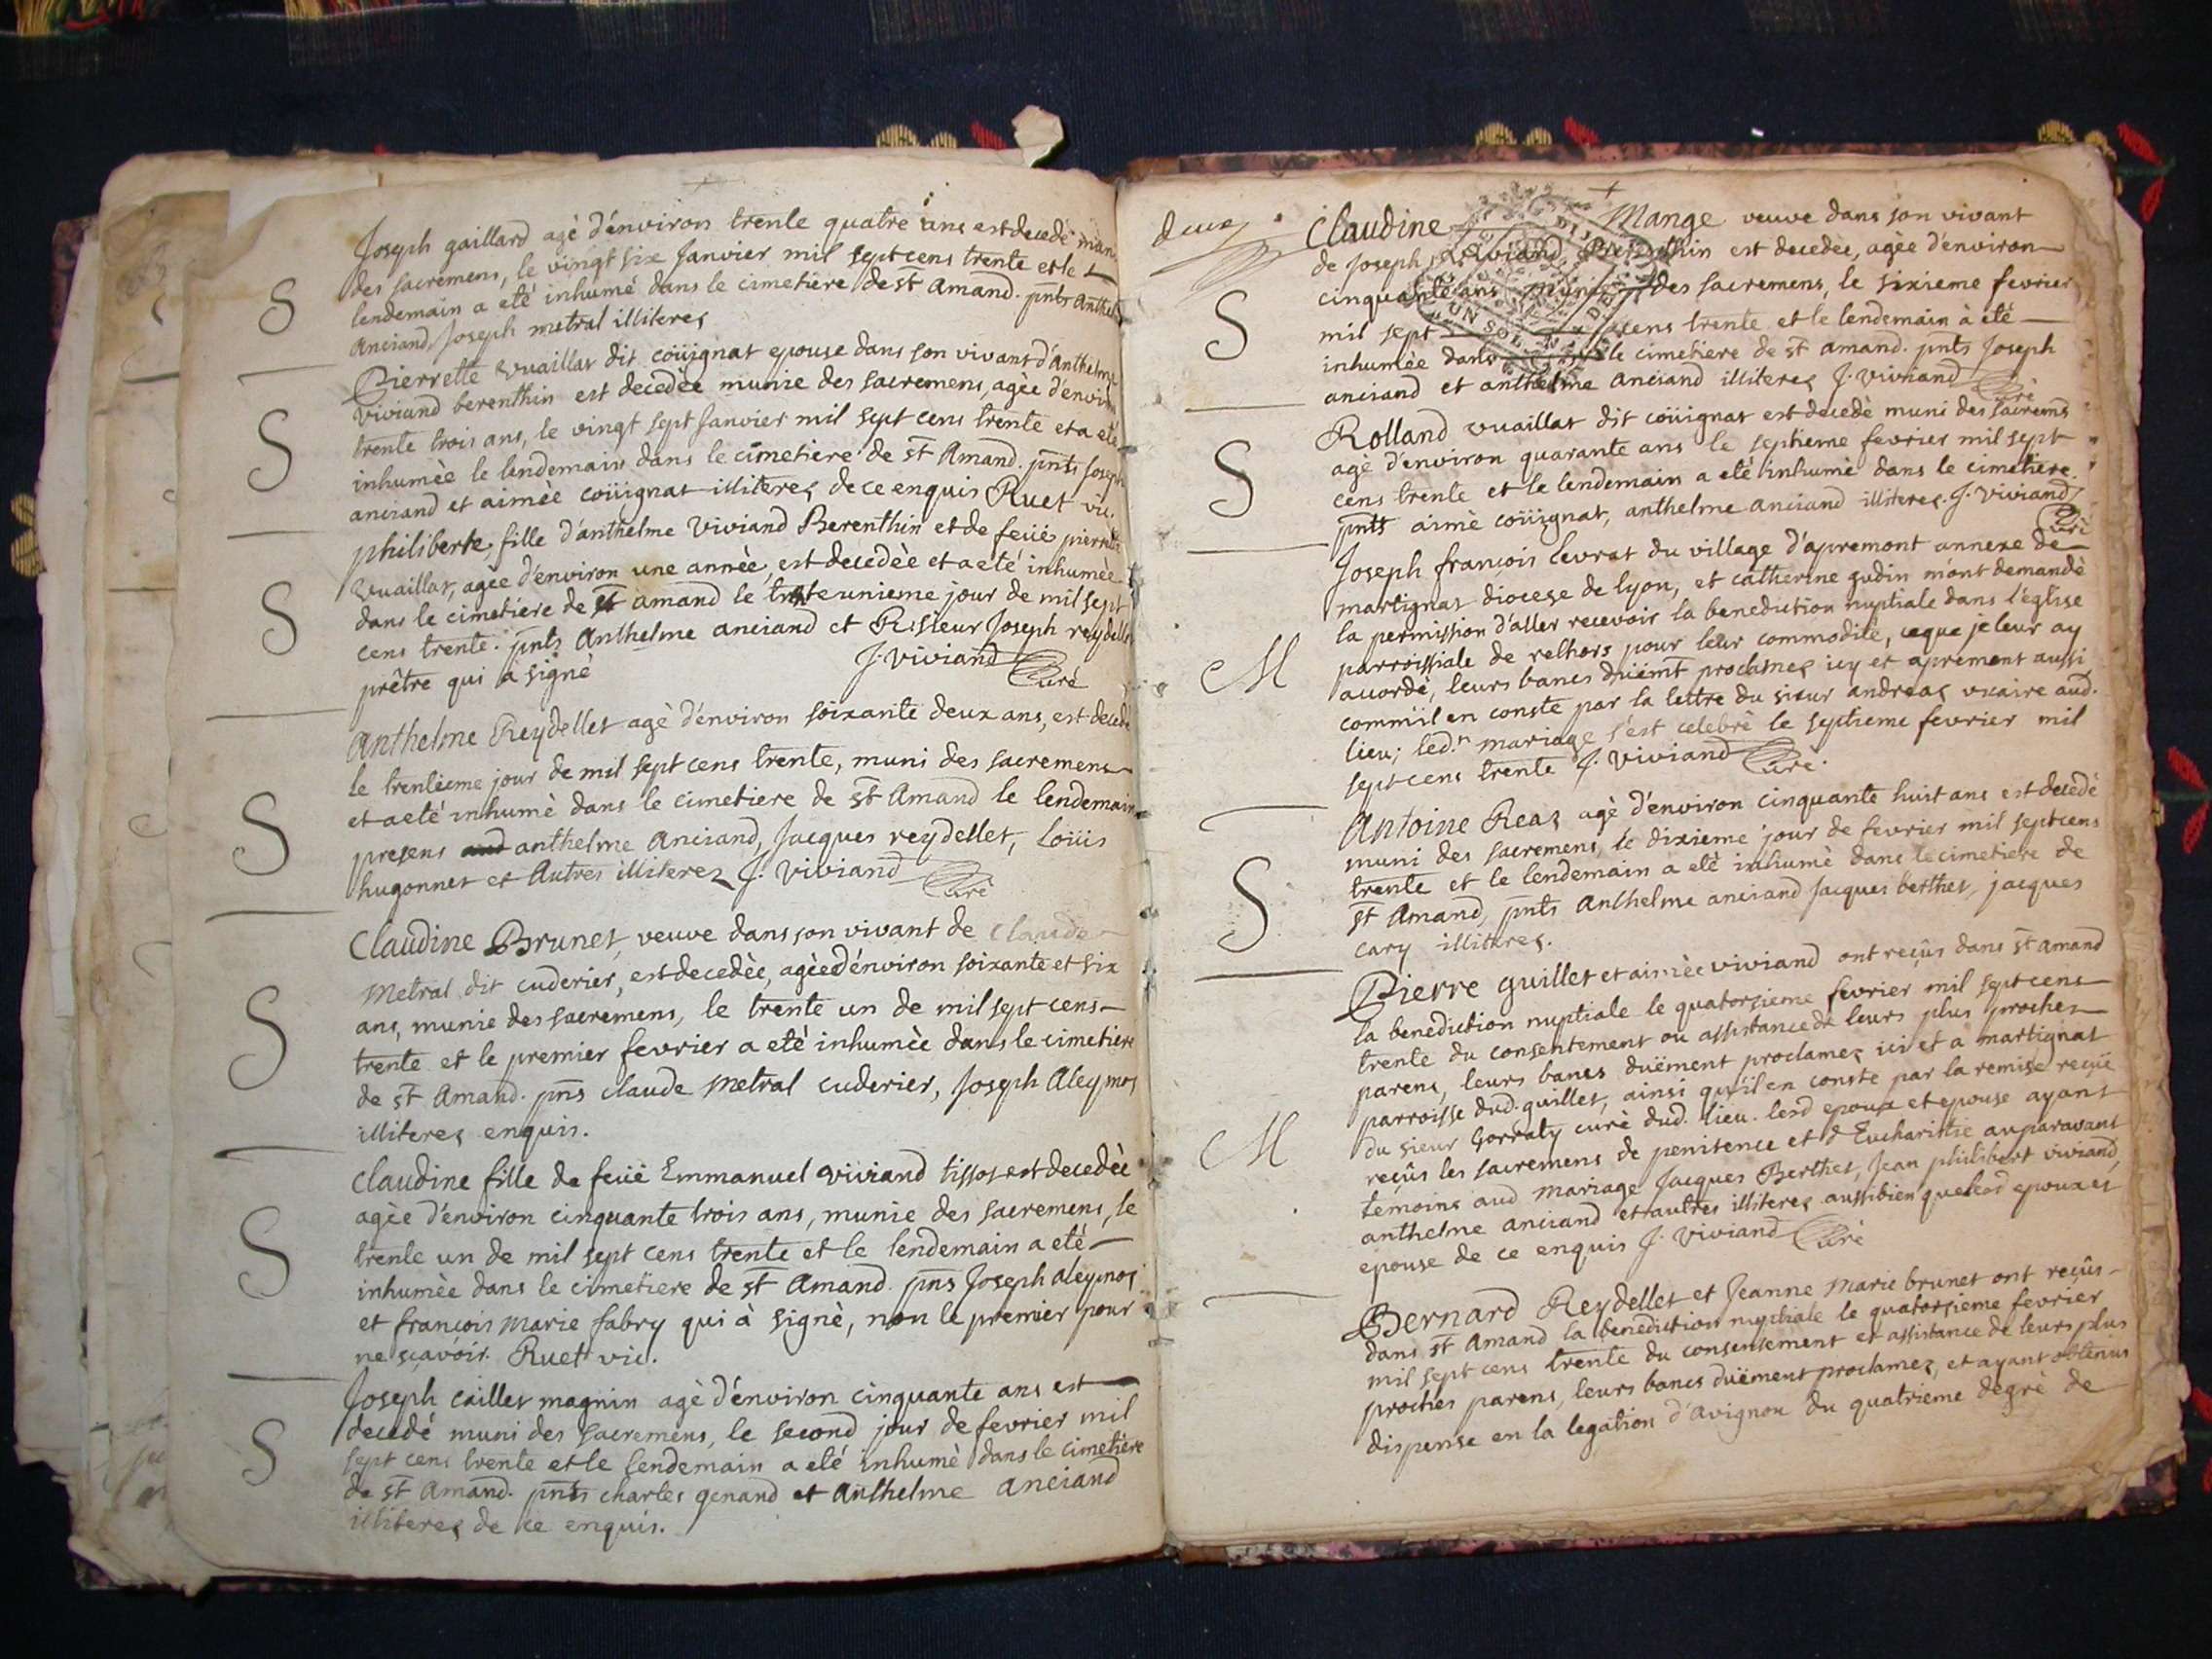 Joseph gaillard agè d'environ trente quatre ans est decedè muni
des sacremens, le vingt six Janvier mil sept cens trente et le
S
lendemain a eté inhumé dans le cimetiere de st Amand. pnts Anthel
Anciand, Joseph metral illiteres
Pierrette vuaillat dit coüignat epouse dans son vivant d'Anthelme
viviand berenthin est decedèe munie des sacremens, agèe d'environ
S
trente trois ans, le vingt sept Janvier mil sept cens trente et a eté
inhumèe le lendemain dans le cimetiere de st Amand. pnts Joseph
anciand et aimèe coüignat illiteres de ce enquis Ruet vic.
philiberte, fille d'anthelme Viviand Berenthin et de feüe pierrette
vuaillat, agèe d'environ une annèe, est decedèe et a eté inhumèe
S
dans le cimetiere de st amand le trente unieme jour de mil sept
cens trente. pnts Anthelme anciand et R. sieur Joseph reydellet
prêtre qui a signè J. Viviand Curé
Anthelme Reydellet agè d'environ soixante deux ans, est decedé
le trentieme jour de mil sept cens trente, muni des sacremens
S
et a eté inhumè dans le cimetiere de st Amand le lendemain
presens anthelme Anciand, Jacques reydellet, Loüis
hugonnet et Autres illiterez J. Viviand Curè
Claudine Brunet, veuve dans son vivant de Claude
Metral dit cuderier, est decedèe, agèe d'environ soixante et six
S
ans, munie des sacremens, le trente un de mil sept cens
trente et le premier fevrier a eté inhumèe dans le cimetiere
de st Amand. pns claude Metral cuderier, Joseph Aleymos
illiteres enquis.
Claudine fille de feüe Emmanuel Viviand tissot est decedèe
agèe d'environ cinquante trois ans, munie des sacremens, le
S
trente un de mil sept cens trente et le lendemain a eté
inhumèe dans le cimetiere de st Amand. pns Joseph aleymos
et francois Marie fabry qui à signè, non le premier pour
ne sçavoir. Ruet vic.
Joseph caillet magnin agè d'environ cinquante ans est
decedé muni des sacremens, le second jour de fevrier mil
S
sept cens trente et le lendemain a eté inhumè dans le cimetière
de st Amand. pnts charles genand et Anthelme Anciand
illiteres de ce enquis.
deux
Claudine Mange veuve dans son vivant
de Joseph Viviand Berenthin est decedèe, agèe d'environ
cinquante ans munie des sacremens, le sixieme fevrier
S
UN SOL
mil sept cens trente et le lendemain à eté
inhumèe dans le cimetiere de st amand. pnts Joseph
anciand et anthelme anciand illiteres J. Viviand Curè
Rolland vuaillat dit coüignat est decedè muni des sacrems
agè d'environ quarante ans le septieme fevrier mil sept
S
cens trente et le lendemain a eté inhumè dans le cimetiere.
pnts aimè coüignat, anthelme anciand illiteres. J. Viviand Curè
Joseph francois levrat du village d'apremont annexe de
martignat diocese de lyon, et catherine gudin m'ont demandè
la permission d'aller recevoir la benediction nuptiale dans l'église
parroissiale de relhors pour leur commodité, ce que je leur ay
M
accordè, leurs bancs düemt proclames icy et apremont aussi
comm'il en conste par la lettre du sieur andreas vicaire aud.
lieu; led.n mariage s'est celebrè le septieme fevrier mil
sept cens trente J. Viviand Curè.
Antoine Reaz agè d'environ cinquante huit ans est decedè
muni des sacremens, le dixieme jour de fevrier mil sept cens
S
trente et le lendemain a eté inhumè dans le cimetiere de
st Amand, pnts Anthelme anciand Jacques berthet, jacques
cary illiteres.
Pierre guillet et aimèe viviand ont reçûs dans st amand
la benediction nuptiale le quatorsieme fevrier mil sept cens
trente du consentement ou assistance de leurs plus proches
parens, leurs bancs düement proclamez ici et a martignat
parroisse dud. guillet, ainsi qu'il en conste par la remise reçüe
M
du sieur Gorraty curè dud. lieu. lesd epoux et epouse ayant
reçûs les sacremens de penitence et d'Eucharistie auparavant
temoins aud mariage Jacques Berthet, Jean philibert viviand,
anthelme anciand et autres illiteres aussi bien que lesd epoux et
epouse de ce enquis J. Viviand Curè
Bernard Reydellet et Jeanne Marie brunet ont reçûs
dans st Amand la benediction nuptiale le quatorsieme fevrier
mil sept cens trente du consentement et assistance de leurs plus
proches parens, leurs bancs düement proclamez, et ayant obtenus
dispense en la legation d'Avignon du quatrieme degrè de